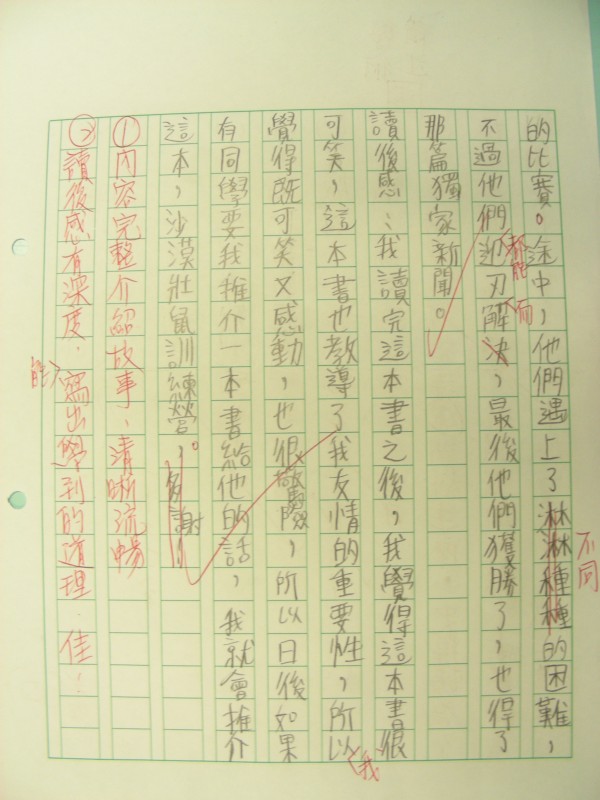 的比賽。途中，他們遇上了淋淋種種的困難，
不同
不過他們迎刃解决，最後他們獲勝了，也得了
都能
而
那篇獨家新聞。
讀後感：我讀完這本書之後，我覺得這本書很
可笑，這本書也教導了我友情的重要性，所以
我
覺得既可笑又感動，也很驚險，所以日後如果
有同學要我推介一本書給他的話，我就會推介
這本，沙漠壯鼠訓練營。多謝!!
①內容完整介紹故事，清晰流暢
②讀後感有深度，寫出學到的道理，佳！
能